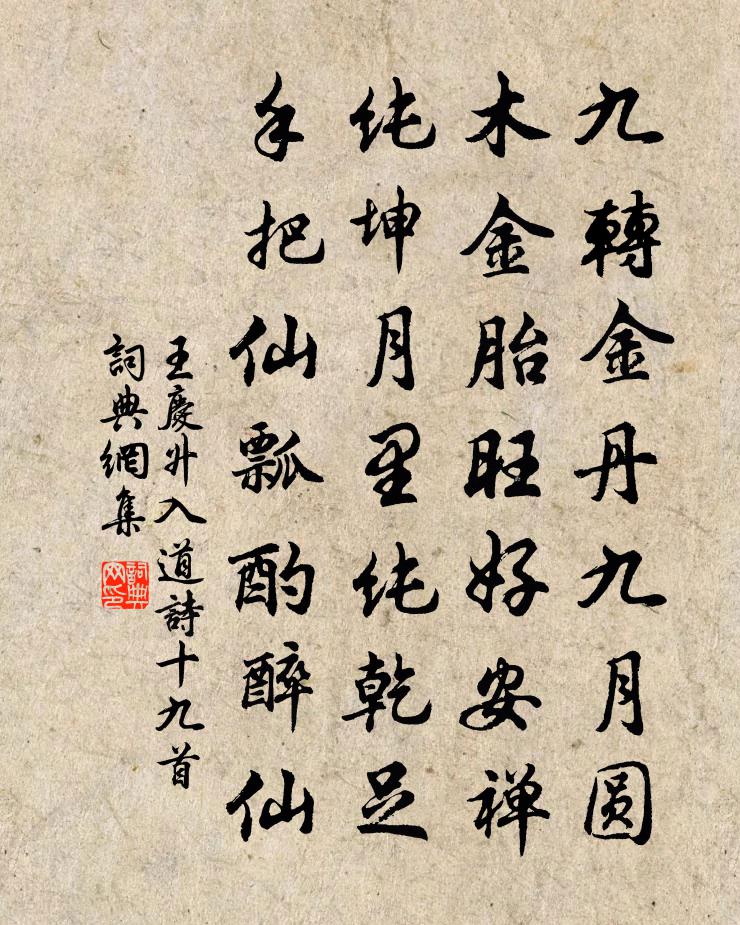 九轉金丹九月圆
木金胎旺好安禅
纯坤月里纯乾足
手把仙瓢酌醉仙
王慶升入道詩十九首
詞典網集
詞典网印